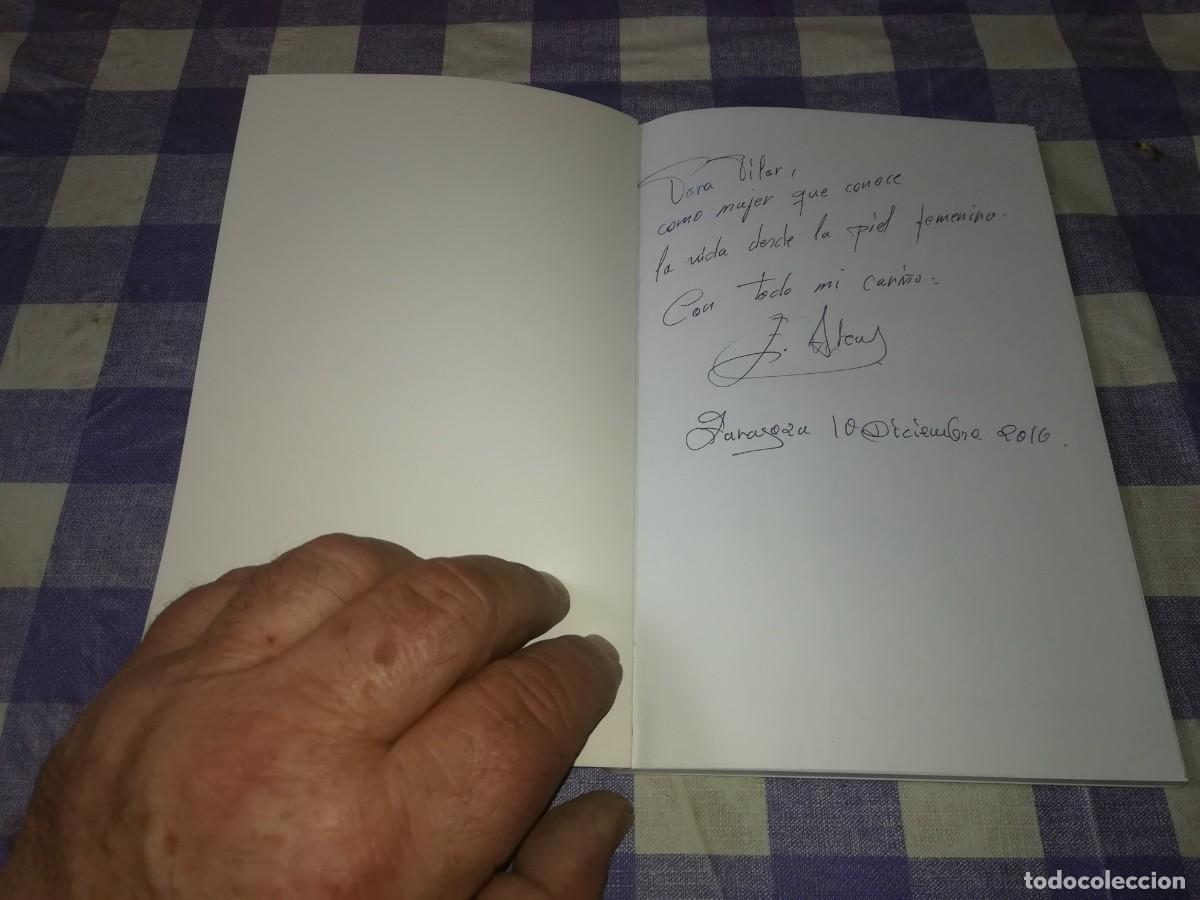 Para Pilar,
como mujer que conoce
la vida desde la piel femenina.
Con todo mi cariño:
Zaragoza 10 Diciembre 2016.
todocoleccion